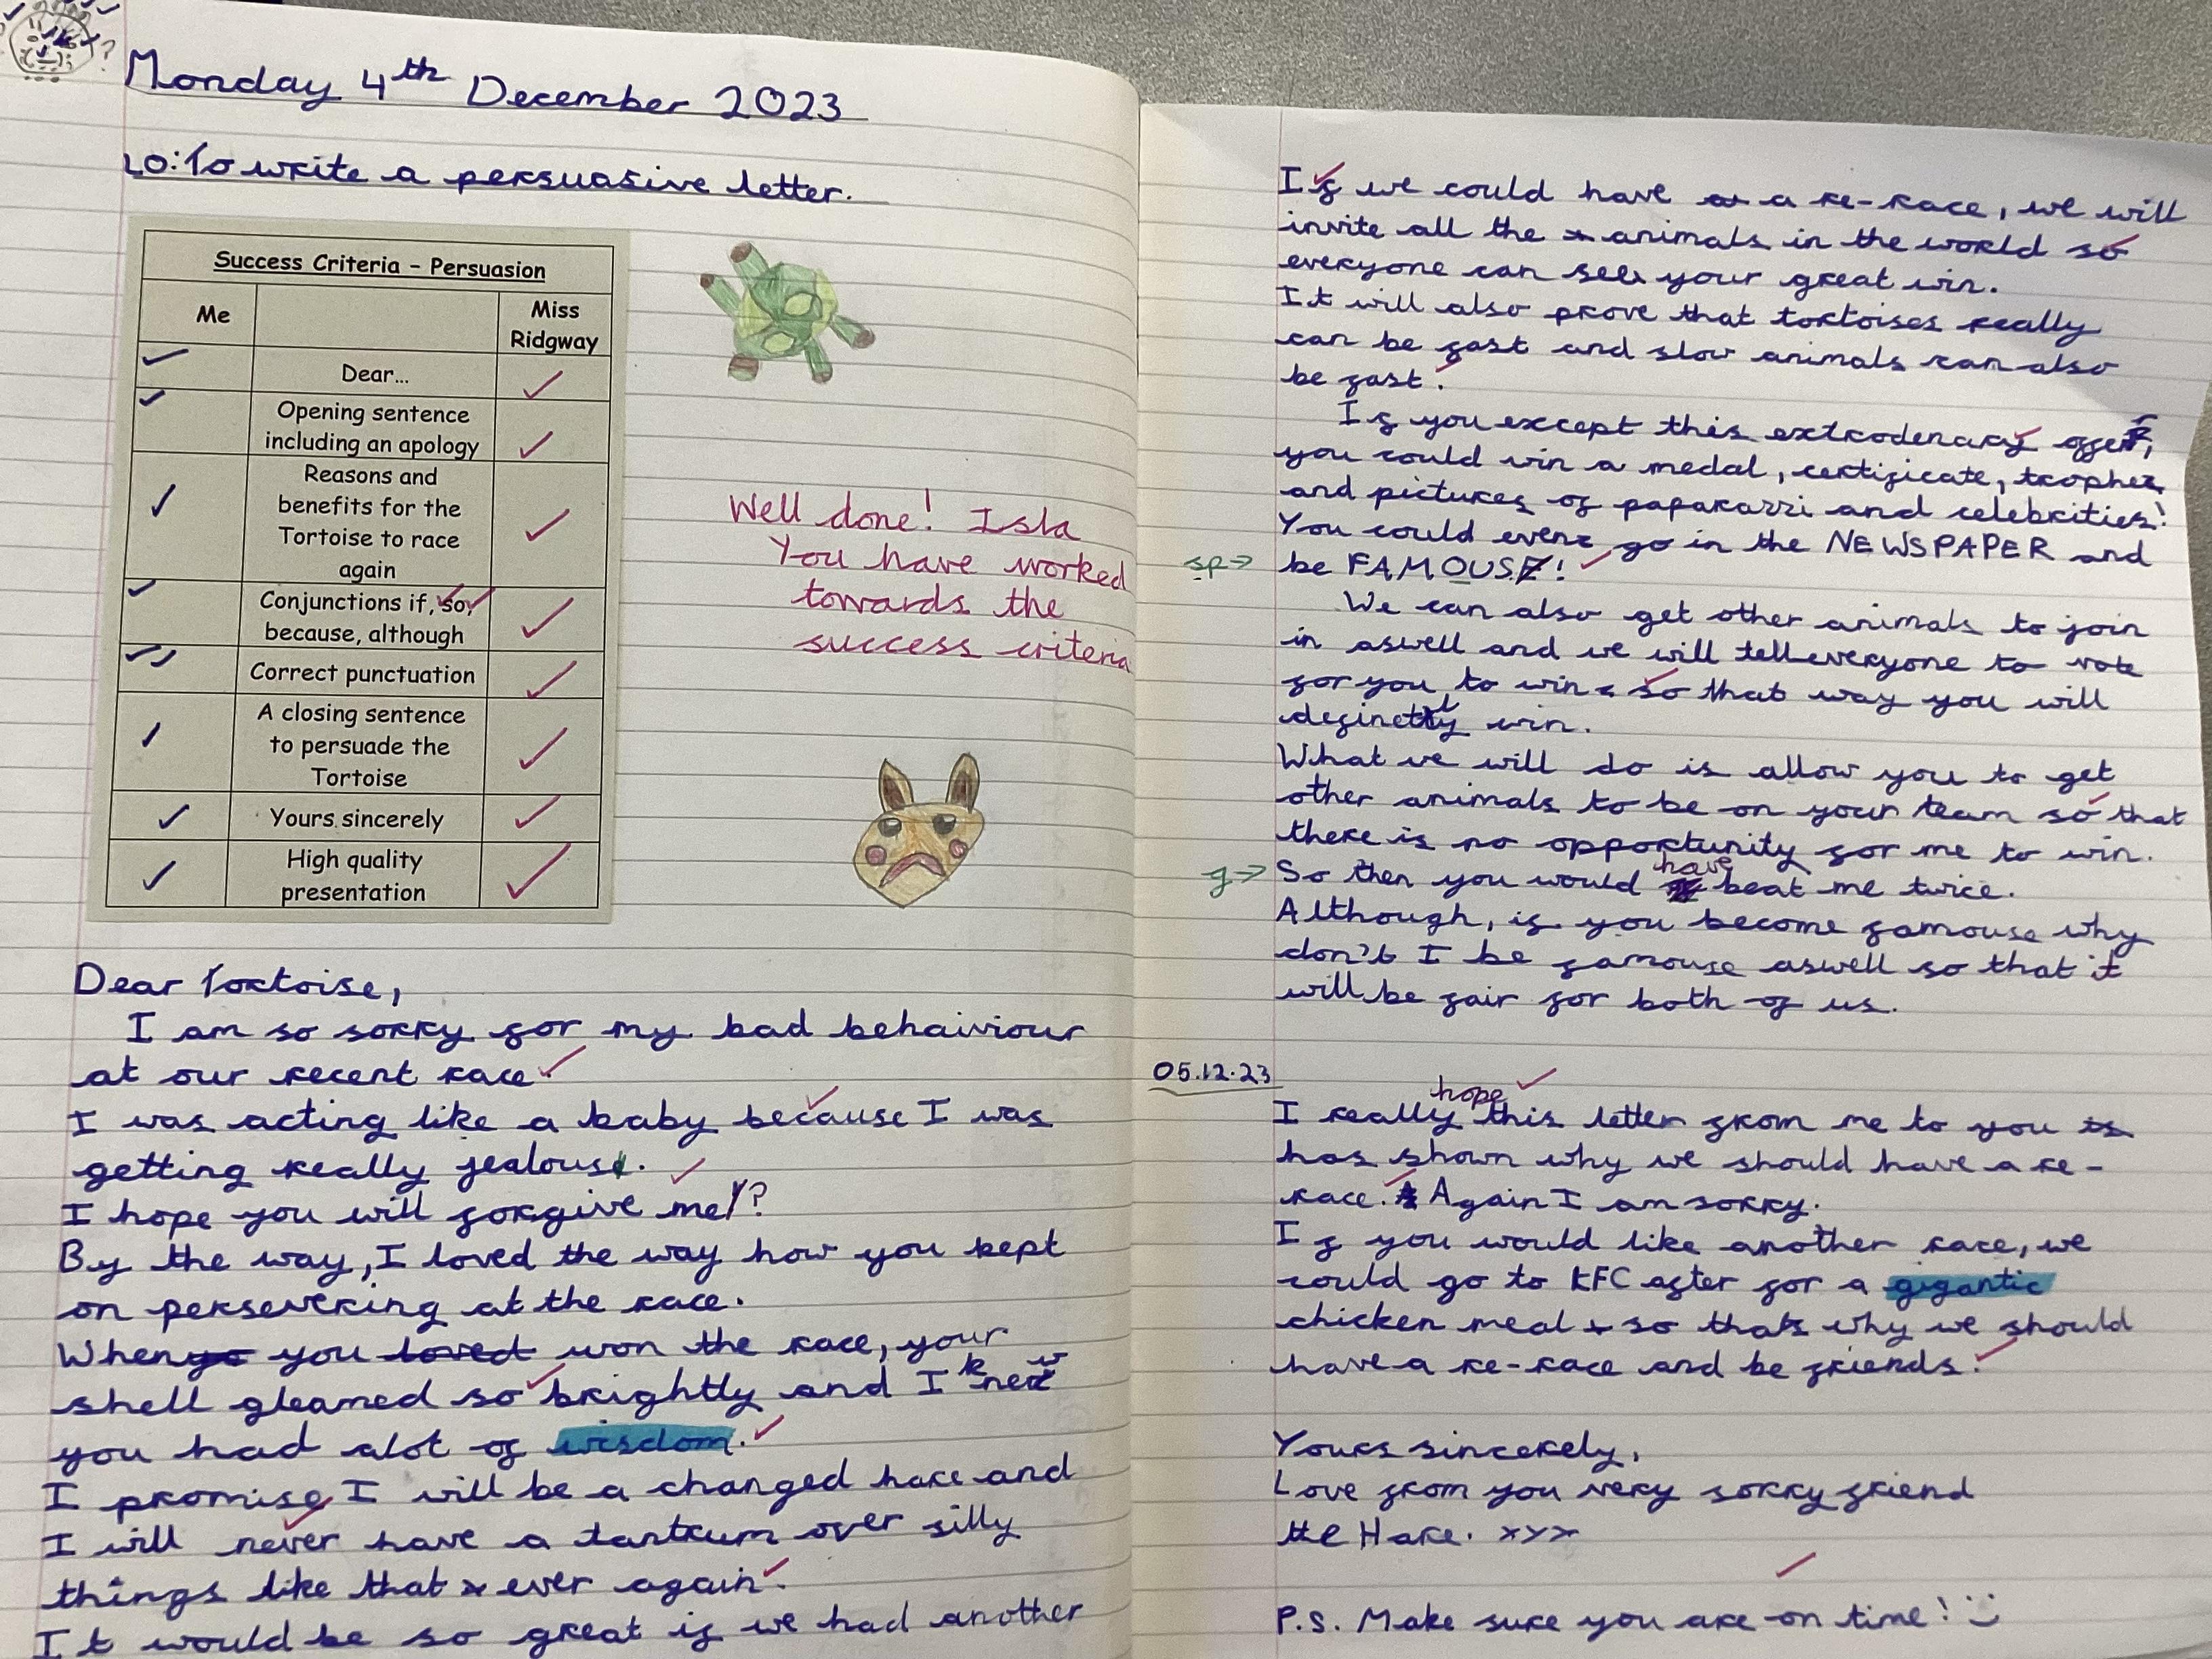 Monday 4th December 2023
LO: To write a persuasive letter.
Success Criteria – Persuasion
Me
Miss Ridgway
Dear...
Opening sentence
including an apology
Reasons and
benefits for the
Tortoise to race
again
Conjunctions if, so,
because, although
Correct punctuation
A closing sentence
to persuade the
Tortoise
Yours sincerely
High quality
presentation
Well done! Isla
You have worked
towards the
success criteria
Dear Tortoise,
I am so sorry for my bad behaiviour
at our recent race.
I was acting like a baby because I was
getting really jealous.
I hope you will forgive me!?
By the way, I loved the way how you kept
on persevering at the race.
When you loved won the race, your
shell gleamed so brightly and I knew
you had alot of wisdom.
I promise I will be a changed hare and
I will never have a tantrum over silly
things like that ever again.
It would be so great if we had another
If we could have a re-race, we will
invite all the animals in the world so
everyone can see your great win.
It will also prove that tortoises really
can be fast and slow animals can also
be fast.
If you except this extrodenary offer,
you could win a medal, certificate, trophe
and pictures of paparazzi and celebrities!
You could even go in the NEWSPAPER and
sp→ be FAMOUS!
We can also get other animals to join
in aswell and we will tell everyone to vote
for you to win so that way you will
definetly win.
What we will do is allow you to get
other animals to be on your team so that
there is no opportunity for me to win.
g→ So then you would have beat me twice.
Although, if you become famouse why
don't I be famouse aswell so that it
will be fair for both of us.
05.12.23
I really hope this letter from me to you is
has shown why we should have a re-
race. Again I am sorry.
If you would like another race, we
could go to KFC after for a gigantic
chicken meal so thats why we should
have a re-race and be friends.
Yours sincerely,
Love from you very sorry friend
the Hare. xyx
P.S. Make sure you are on time!